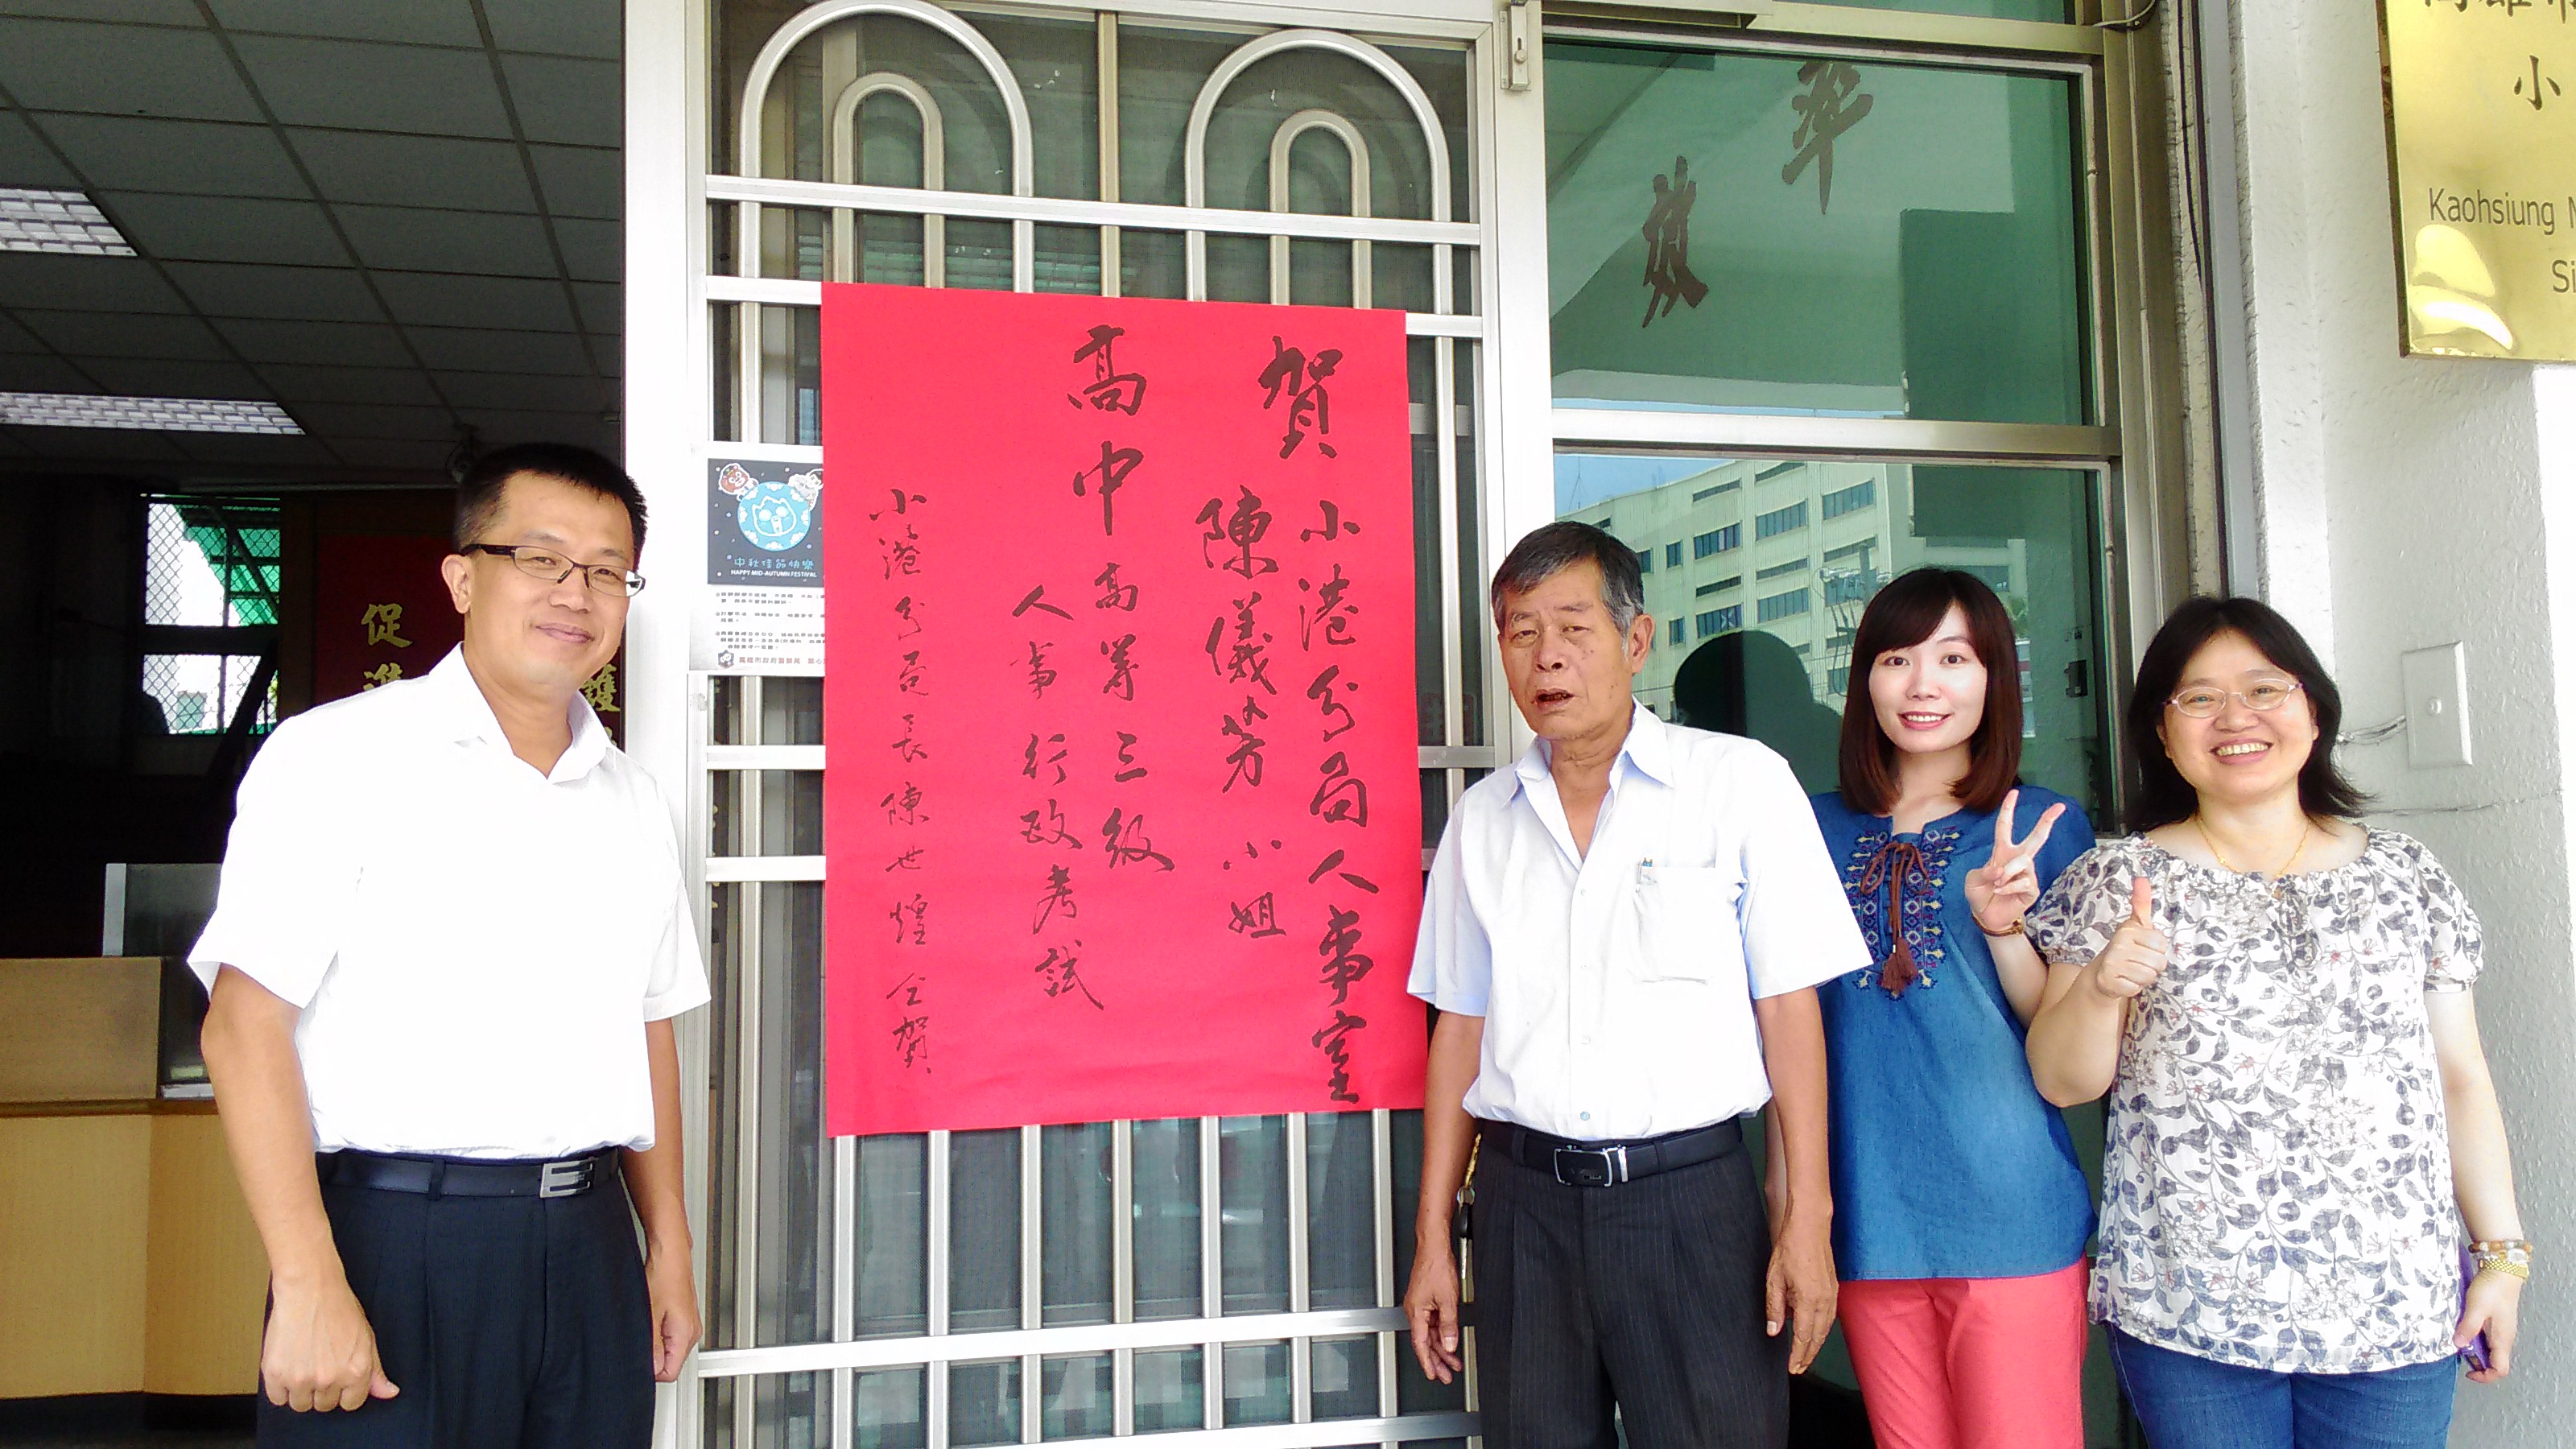 賀 小港分局人事室
陳儀芳 小姐
高中高等三級
人事行政考試
小港分局長陳世煌仝賀
效率
小
Kaohsiung
Si
中秋佳節快樂
HAPPY MID-AUTUMN FESTIVAL
促進
護